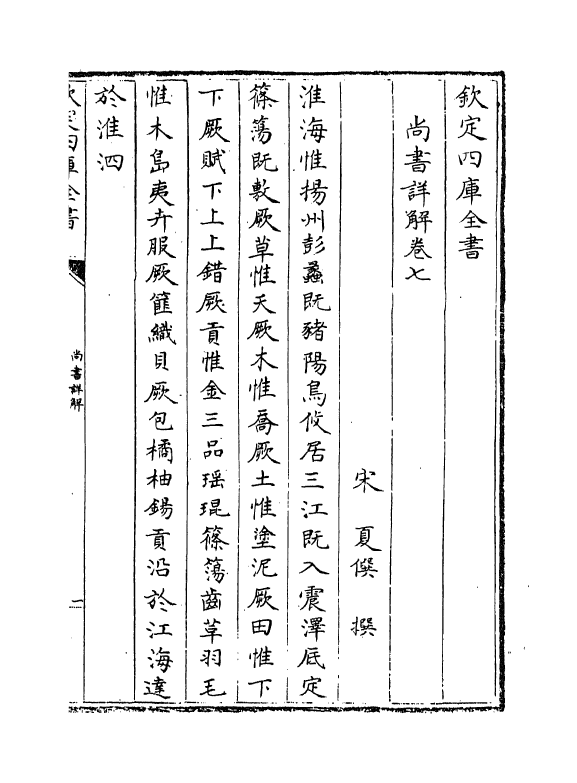 欽定四庫全書
尚書詳解卷七
宋 夏僎 撰
淮海惟揚州彭蠡既豬陽鳥攸居三江既入震澤厎定
篠簜既敷厥草惟夭厥木惟喬厥土惟塗泥厥田惟下
下厥賦下上上錯厥貢惟金三品瑶琨篠簜齒草羽毛
惟木島夷卉服厥篚織貝厥包橘柚錫貢沿於江海達
於淮泗
欽定四庫全書
尚書詳解
一